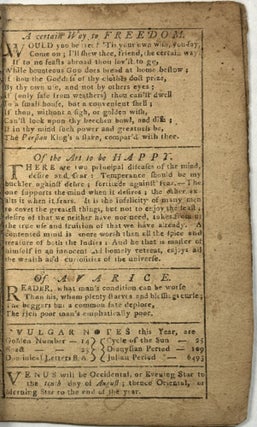 A certain Way to FREEDOM.
WOULD you be free? 'Tis your chief wish, you say,
Come on; I'll shew thee, friend, the certain way
If to no feasts abroad thou lov'st to go,
While bounteous God does bread at home bestow;
If thou the goodness of thy cloaths dost prize,
By thy own use, and not by others eyes;
If (only safe from weathers) thou can'st dwell
In a small house, but a convenient shell;
If thou, without a sigh, or golden wish,
Can'st look upon thy beechen bowl, and dish;
If in thy mind such power and greatness be,
The Persian King's a slave, compar'd with thee.
Of the Art to be HAPPY.
THERE are two principal diseases of the mind,
desire and fear: Temperance should be my
buckler against desire; fortitude against fear.—The
one supports the mind when it desires; the other
it when it fears. It is the infelicity of many men
to covet the greatest things, but not to enjoy the least;
desire of that we neither have nor need, takes from us
the true use and fruition of that we have already. A
contented mind is more worth than all the spice and
treasure of both the Indies: And he that is master of
himself in an innocent and homely retreat, enjoys all
the wealth and curiosities of the universe.
Of AVARICE.
READER, what man's condition can be worse
Than his, whom plenty starves and blessings curse;
The beggars but a common fate deplore,
The rich poor man's emphatically poor.
VULGAR NOTES this Year, are
Golden Number — 14 Cycle of the Sun — 25
Epact — 23 Dionysian Period — 109
Dominical Letters B. Julian Period — 6493
VENUS will be Occidental, or Evening Star to
the tenth day of August; thence Oriental, or
Morning Star to the end of the year.